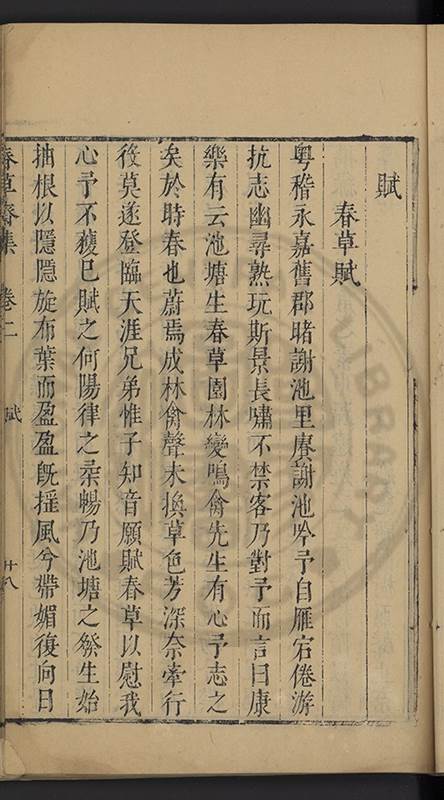 賦
春草賦
粵稽永嘉舊郡睹謝池里賡謝池吟予自雁宕倦游
抗志幽尋熟玩斯景長嘯不禁客乃對予而言曰康
樂有云池塘生春草園林變鳴禽先生有心予志之
矣於時春也蔚焉成林禽聲未換草色芳深奈牽行
役莫遂登臨天涯兄弟惟子知音願賦春草以慰我
心予不獲已賦之何陽律之柔暢乃池塘之發生始
抽根以隱隱旋布葉而盈盈旣搖風兮帶媚復向日
春草齋集 卷二 賦 廿八